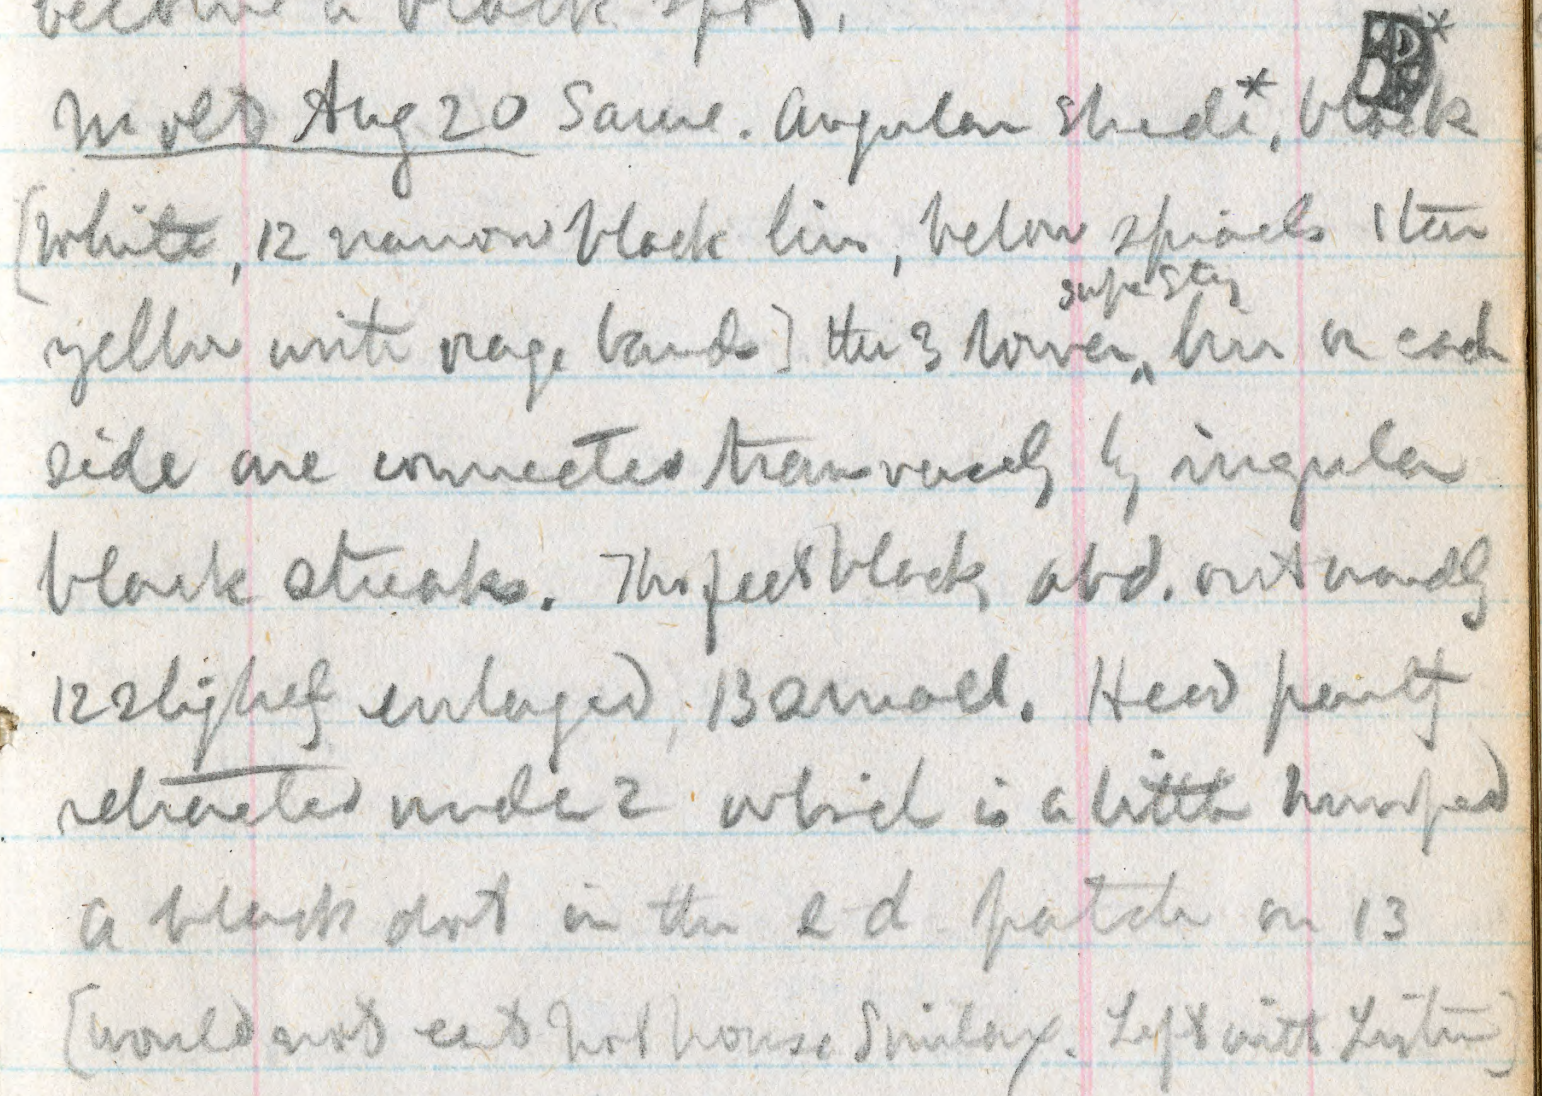 become a black spot.
Molt Aug 20 Same. Angular shield*, black
[White, 12 narrow black lines, below spiracles
yellow with orange bands] the 3 lower lines on each
side are connected transversely by
black streaks. Th. feet black, abd. outwardly
12 slightly enlarged, 13 small. Head partly
retracted under 2 which is a little humped
a black dot in the 2d patch on 13
[would not eat hot house Smilax. Left with